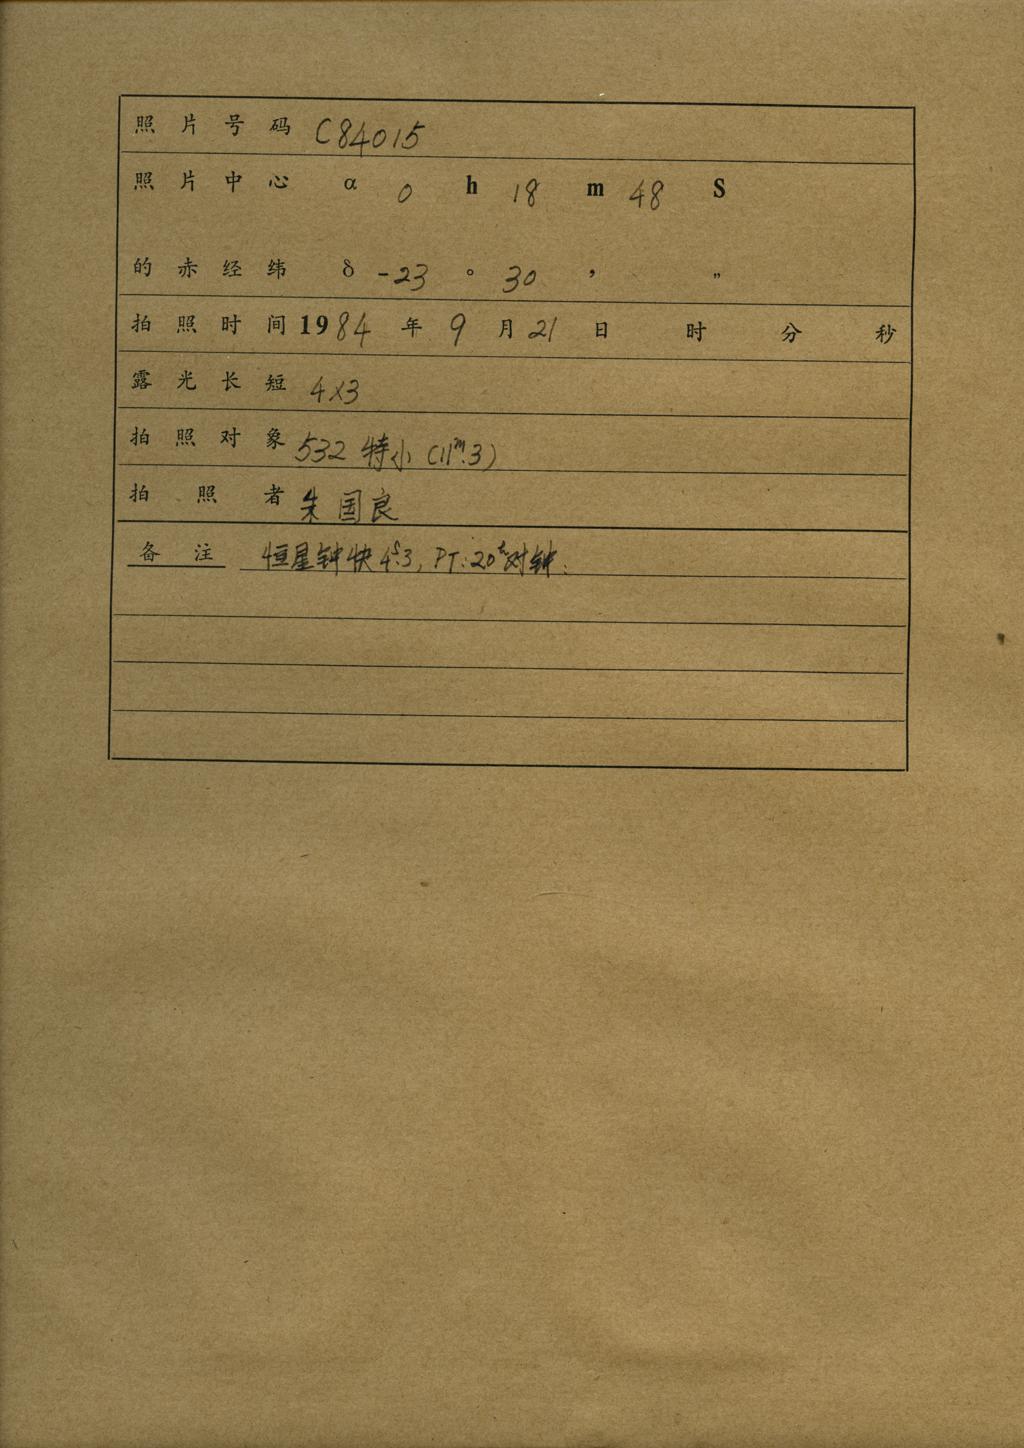 照片号码 C84015
照片中心 α 0 h 18 m 48 S
的赤经纬 δ -23 ° 30 ′ ″
拍照时间 1984 年 9 月 21 日 时 分 秒
露光长短 4×3
拍照对象 532 特小 (11ᵐ.3)
拍照者 朱国良
备注 恒星钟快 4ˢ.3, PT: 20ʰ对钟.